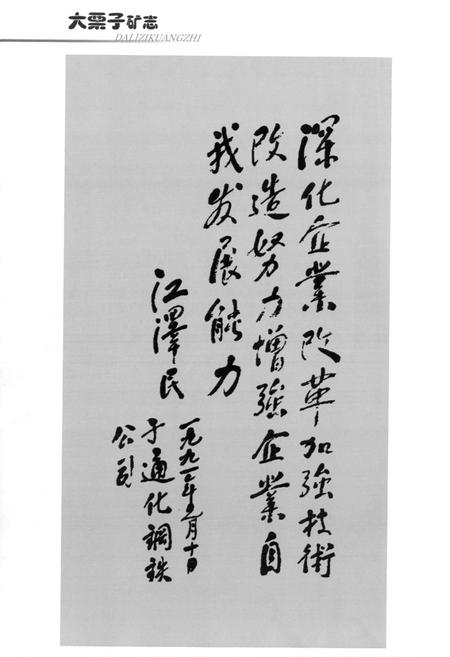 大栗子矿志
DALIZIKUANGZHI
深化企業改革加強技術
改造努力增強企業自
我发展能力
江澤民
一九九一年元月十日
于通化鋼鉄
公司